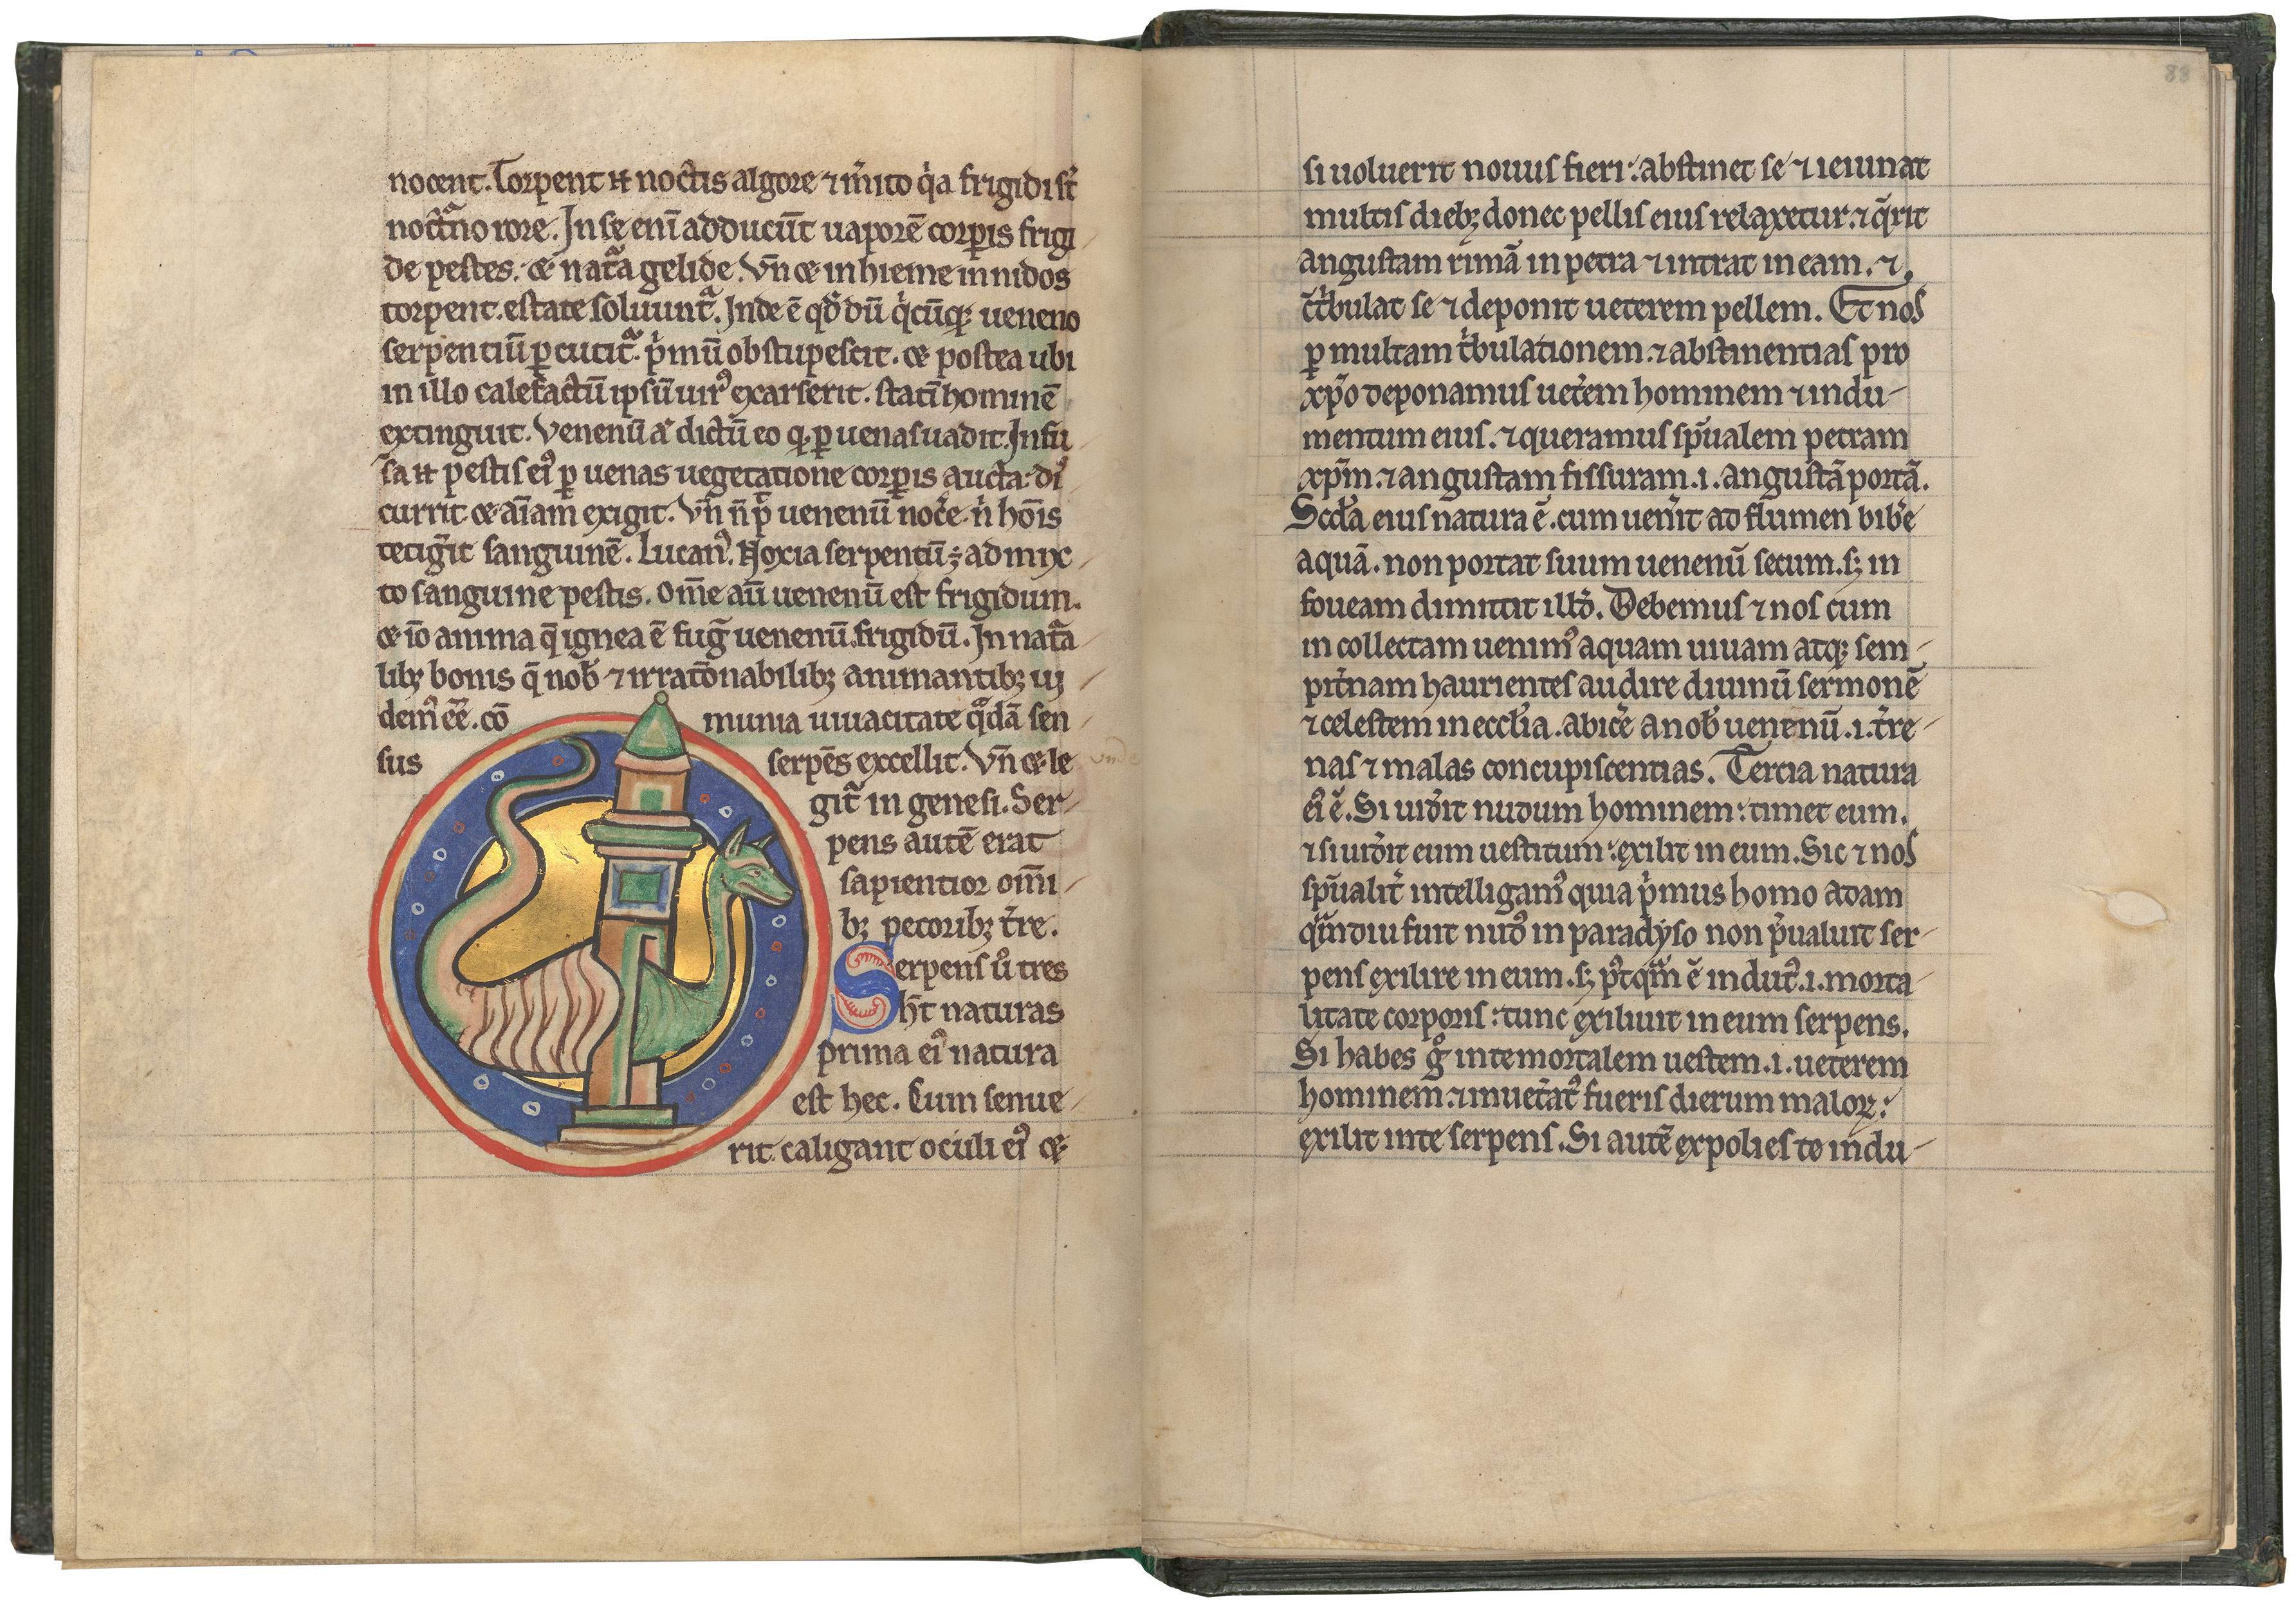 nocent. Torpent n̄ noctis algore ⁊ m̄ito q̇a frigidi st̄
noct̄no rore. In se enī adducūt uaporē corꝑis frigi
de pestes. & nat̄a gelide. Vn̄ & in hieme in nidos
torpent. estate soluunt̄. Inde ē qđ dū q̇cūq; ueneno
serpentiū ꝑcutit̄. ṗmū obstupescit. & postea ubi
in illo calefactū ipsū uir⁹ exarserit. statī hominē
extinguit. Venenū a̅ dictū eo q. ꝑ uenas uadit. Infu
sa n̄ pestis ei⁹ ꝑ uenas uegetatione corꝑis aucta. di⁹
currit & aīam exigit. Vn̄ n̄ p̄ uenenū noc̄e. n̄ hoīs
tetiḡit sanguinē. Lucan⁹. Noxia serpentū ÷ admix
to sanguine pestis. Om̄e aū uenenū est frigidum.
& iō anima q̄ ignea ē fuḡ uenenū frigidū. In nat̄a
lib; bonis q̄ nob̄ ⁊ irrat̄onabilib; animantib; ui
dem⁹ eē̄. cō munia uiuacitate q̊dā sen
sus serpēs excellit. Vn̄ & le
git̄ in genesi. Ser
pens autē erat
sapientior om̄i
b; pecorib; t̄re.
Serpens ů tres
hn̄t naturas
prima ei⁹ natura
est hec. Cum senue
rit caligant oculi ei⁹ &
88
si uoluerit nouus fieri: abstinet se ⁊ ieiunat
multis dieb; donec pellis eius relaxetur. ⁊ q̄rit
angustam rimā in petra ⁊ intrat in eam. ⁊
ct̄bulat se ⁊ deponit ueterem pellem. Et nos
ꝑ multam t̄bulationem. ⁊ abstinentias pro
xp̄o deponamus uet̄em hominem ⁊ indu
mentum eius. ⁊ queramus sp̄ualem petram
xp̄m. ⁊ angustam fissuram .i. angustā portā.
Scd̄a eius natura ē. cum uen̄it ad flumen bib̄e
aquā. non portat suum uenenū secum. s; in
foueam dimittit illd̄. Debemus ⁊ nos cum
in collectam uenim⁹ aquam uiuam atq; sem
pit̄nam haurientes audire diuinū sermonē
⁊ celestem in ecclīa. abic̄e a nob̄ uenenū .i. t̄re
nas ⁊ malas concupiscentias. Tercia natura
ei⁹ ē. Si uid̄it nudum hominem: timet eum.
⁊ si uid̄it eum uestitum: exilit in eum. Sic ⁊ nos
sp̄ualit̄ intelligam⁹ quia ṗmus homo adam
q̄mdiu fuit nud⁹ in paradyso non p̄ualuit ser
pens exilire in eum. s; p⁹tq̄m ē indut⁹ .i. morta
litate corporis: tunc exiliuit in eum serpens.
Si habes g̊ in te mortalem uestem .i. ueterem
hominem. ⁊ inuet̄at⁹ fueris dierum maloꝝ:
exilit in te serpens. Si autē expolies te indu